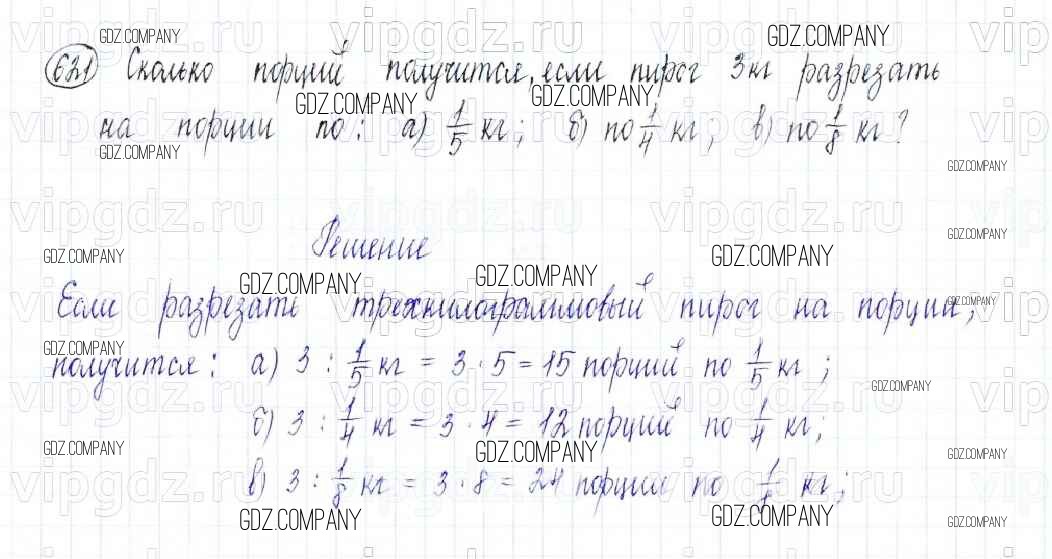 621 Сколько порций получится, если пирог 3 кг разрезать
на порции по: а) 1/5 кг; б) по 1/4 кг; в) по 1/8 кг?
Решение
Если разрезать трехкилограммовый пирог на порции,
получится: а) 3 : 1/5 кг = 3 · 5 = 15 порций по 1/5 кг;
б) 3 : 1/4 кг = 3 · 4 = 12 порций по 1/4 кг;
в) 3 : 1/8 кг = 3 · 8 = 24 порции по 1/8 кг;
GDZ.COMPANY
vipgdz.ru